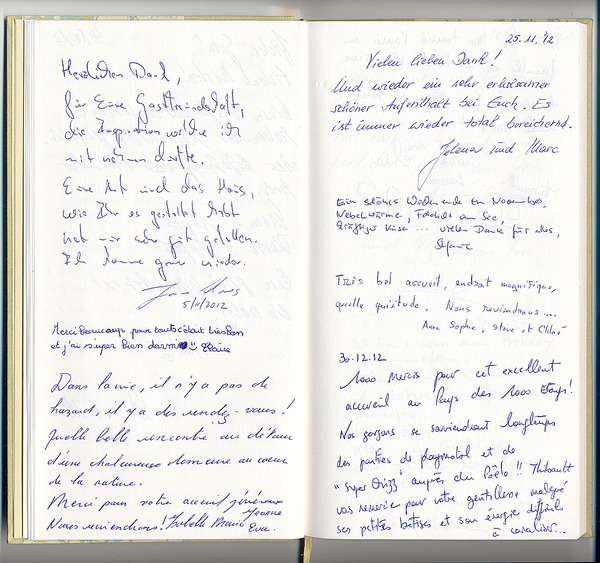 Herzlichen Dank,
für Eure Gastfreundschaft,
die Inspiration welche ich
mit nehmen durfte.
Eure Art und das Haus,
wie Ihr es gestaltet habt
hat mir sehr gut gefallen.
Ich komme gerne wieder.
5/11/2012
Merci beaucoup pour tout c'était très bon
et j'ai super bien dormi
Dans la vie, il n'y a pas de
hazard, il y a des rendez-vous!
Quelle belle rencontre au détour
d'une chaleureuse demeure au coeur
de la nature.
Merci pour votre accueil généreux
Nous reviendrons! Isabelle Marie Jeanne
Eva.
25.11.'12
Vielen lieben Dank!
Und wieder ein sehr erholsamer
schöner Aufenthalt bei Euch. Es
ist immer wieder total bereichernd.
Jelena und Marc
Ein schönes Wochenende im November,
Nebelwärme, am See,
Käse ... vielen Dank für alles,
Stefanie
Très bel accueil, endroit magnifique,
quelle quiétude. Nous reviendrons....
Ann Sophie, steve et Chloé
30.12.12
1000 mercis pour cet excellent
accueil au Pays des 1000 Etangs!
Nos garçons se souviendront longtemps
des parties de playmobil et de
"Super auprès du Poêle!! Thibault
vous remercie pour votre gentillesse malgré
ses petites bêtises et son énergie difficile
à canaliser...